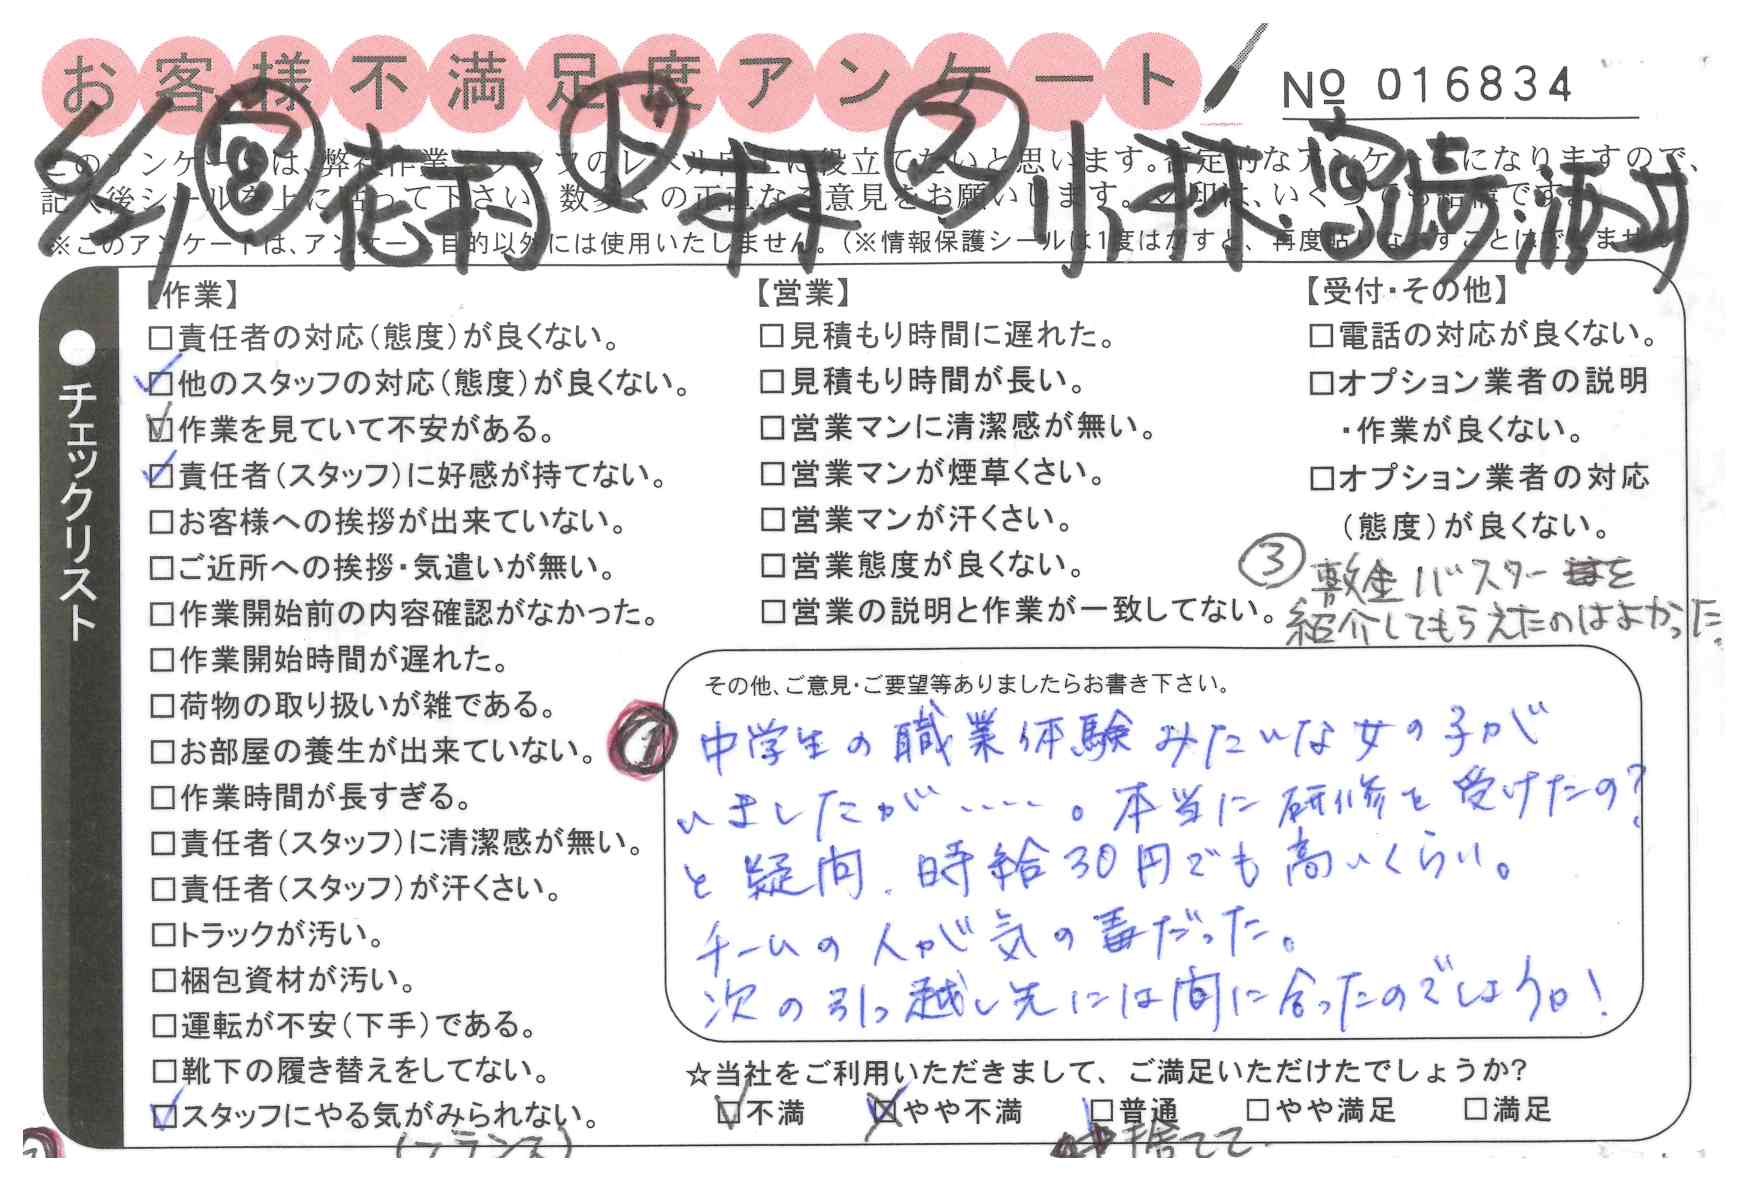 お客様不満足度アンケート
№ 016834
6/21 宮 花羽 ド 林 ス 小林・宮崎・酒井
このアンケートは、弊社作業スタッフのレベル向上に役立てたいと思います。否定的なアンケートになりますので、
記入後シールを上に貼って下さい。数多くの正直なご意見をお願いします。✓印は、いくつでも結構です。
※このアンケートは、アンケート目的以外には使用いたしません。(※情報保護シールは1度はがすと、再度貼りなおすことはできません
●チェックリスト
【作業】
□責任者の対応(態度)が良くない。
□他のスタッフの対応(態度)が良くない。
□作業を見ていて不安がある。
□責任者(スタッフ)に好感が持てない。
□お客様への挨拶が出来ていない。
□ご近所への挨拶・気遣いが無い。
□作業開始前の内容確認がなかった。
□作業開始時間が遅れた。
□荷物の取り扱いが雑である。
□お部屋の養生が出来ていない。
□作業時間が長すぎる。
□責任者(スタッフ)に清潔感が無い。
□責任者(スタッフ)が汗くさい。
□トラックが汚い。
□梱包資材が汚い。
□運転が不安(下手)である。
□靴下の履き替えをしてない。
□スタッフにやる気がみられない。
【営業】
□見積もり時間に遅れた。
□見積もり時間が長い。
□営業マンに清潔感が無い。
□営業マンが煙草くさい。
□営業マンが汗くさい。
□営業態度が良くない。
□営業の説明と作業が一致してない。
【受付・その他】
□電話の対応が良くない。
□オプション業者の説明
・作業が良くない。
□オプション業者の対応
(態度)が良くない。
③ 敷金バスターを
紹介してもらえたのはよかった。
その他、ご意見・ご要望等ありましたらお書き下さい。
① 中学生の職業体験みたいな女の子が
いましたが…‥。本当に研修を受けたの?
と疑問。時給30円でも高いくらい。
チームの人が気の毒だった。
次の引っ越し先には間に合ったのでしょうか!
☆当社をご利用いただきまして、ご満足いただけたでしょうか?
□不満 □やや不満 □普通 □やや満足 □満足
捨てて